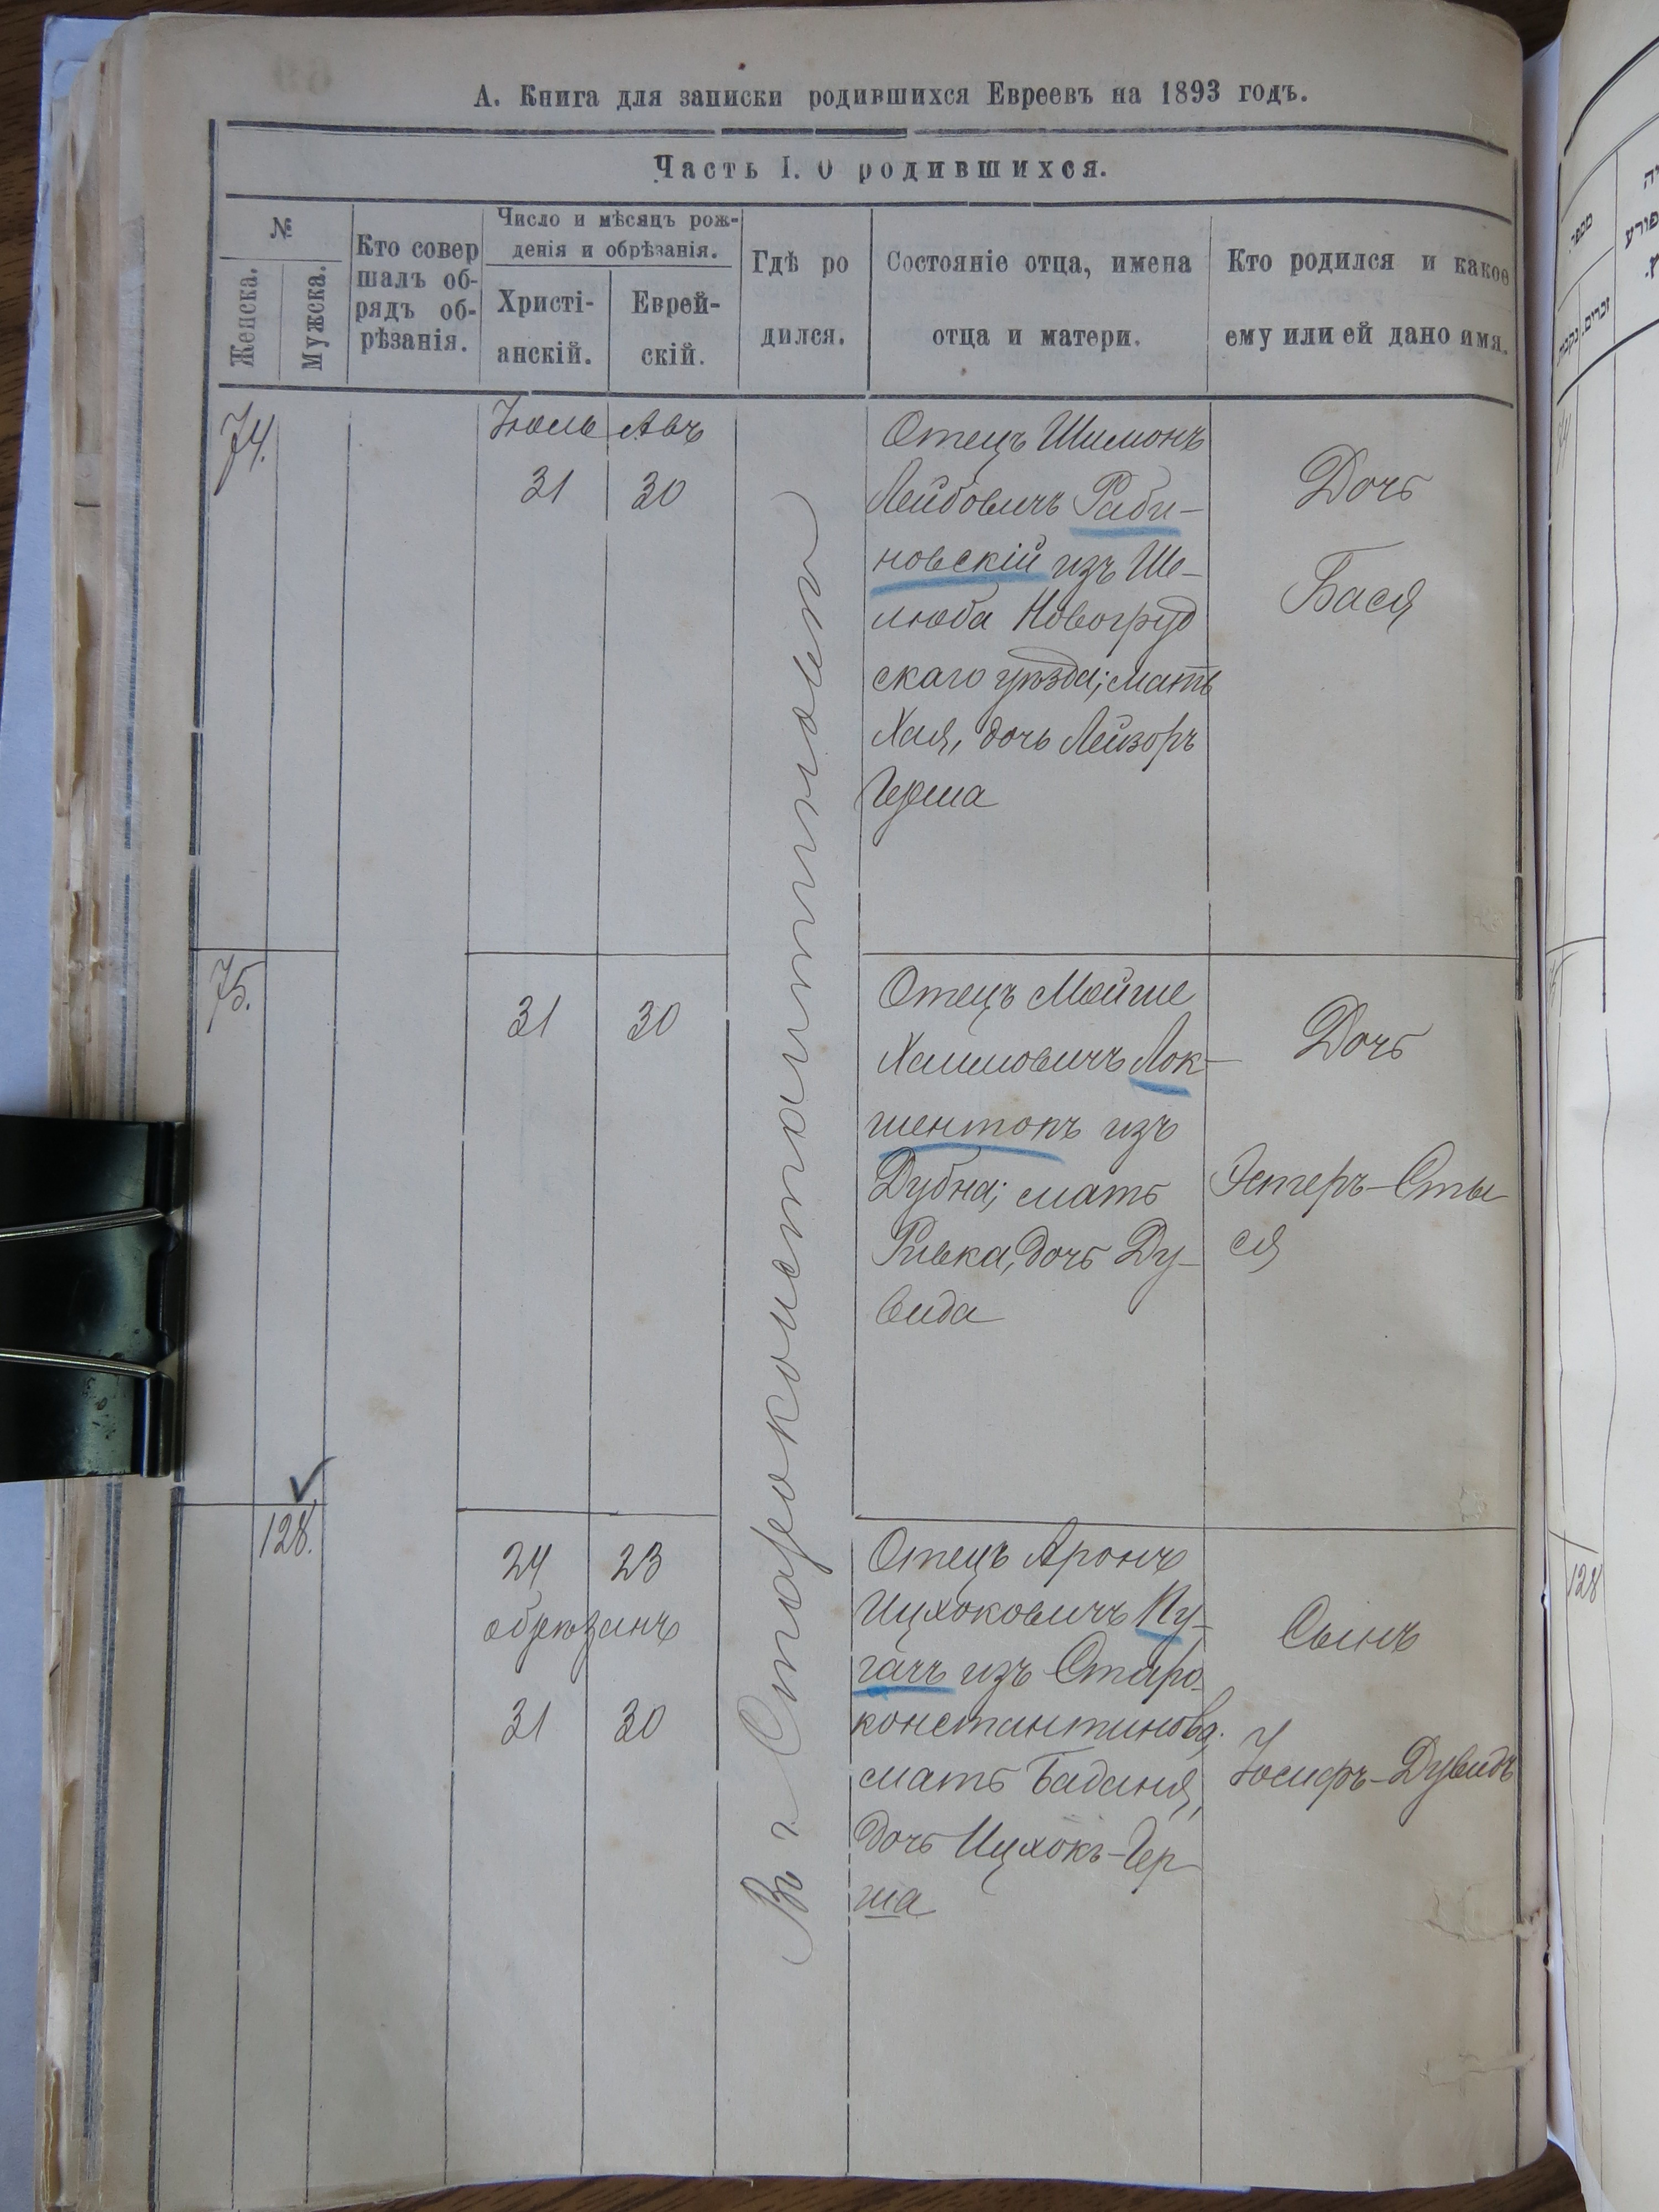 А. Книга для записки родившихся Евреевъ на 1893 годъ.
Часть I. О родившихся.
№
Женска.
Мужска.
Кто совер
шалъ об-
рядъ об-
рѣзанія.
Число и мѣсяцъ рож-
денія и обрѣзанія.
Христі-
анскій.
Еврей-
скій.
Гдѣ ро
дился.
Состояніе отца, имена
отца и матери.
Кто родился и какое
ему или ей дано имя.
74.
Іюль Авъ
31 30
Отецъ Шимонъ
Лейбовичъ Раби-
новскій изъ Ше-
люба Новогруд
скаго уѣзда; мать
Хая, дочь Лейзоръ
Герша
Дочь
Бася
75.
31 30
Отецъ Мойше
Хаимовичъ Лок-
шентопъ изъ
Дубна; мать
Ривка, дочь Ду-
вида
Дочь
Эстеръ-Сты
ся
128.
24 23
обрѣзанъ
31 30
Отецъ Аронъ
Ицхоковичъ Пу-
гачъ изъ Старо-
константинова;
мать Баданя,
дочь Ицхокъ-Гер
ша
Сынъ
Іосифъ-Дувидъ
Въ г Староконстантиновѣ
מספר
זכרים.
נקבות
128